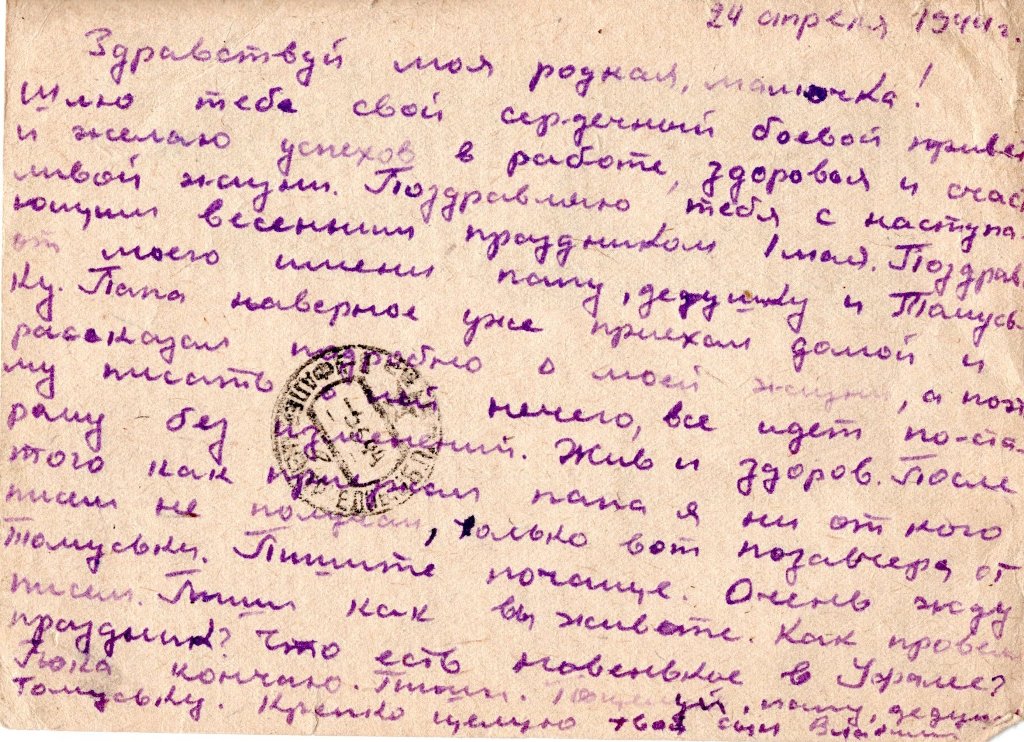 24 апреля 1944г.
Здравствуй моя родная, мамочка!
Шлю тебе свой сердечный боевой привет
и желаю успехов в работе, здоровья и счаст
ливой жизни. Поздравляю тебя с наступа-
ющим весенним праздником 1 мая. Поздравь
от моего имени папу, дедушку и Томусь-
ку. Папа наверное уже приехал домой и
рассказал подробно о моей жизни, а поэто
му писать о ней нечего, все идет по-ста-
рому без изменений. Жив и здоров. После
того как приезжал папа я ни от кого
писем не получал, только вот позавчера от
Томуськи. Пишите почаще. Очень жду
писем. Пиши как вы живете. Как провели
праздник? Что есть новенькое в Уфалее?
Пока кончаю. Пиши. Поцелуй, папу, дедушку
Томуську. Крепко целую твой сын Владимир